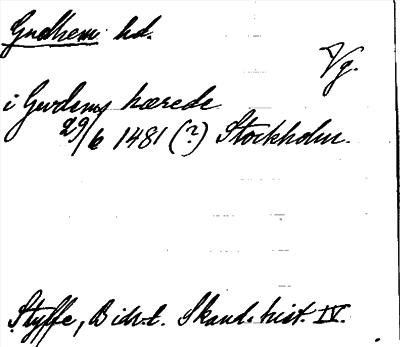 Gudhems hd.
Vg.
i Gudems hærede
29/6 1481 (?) Stockholm.
Styffe, Bidr. t. Skand. hist. IV.